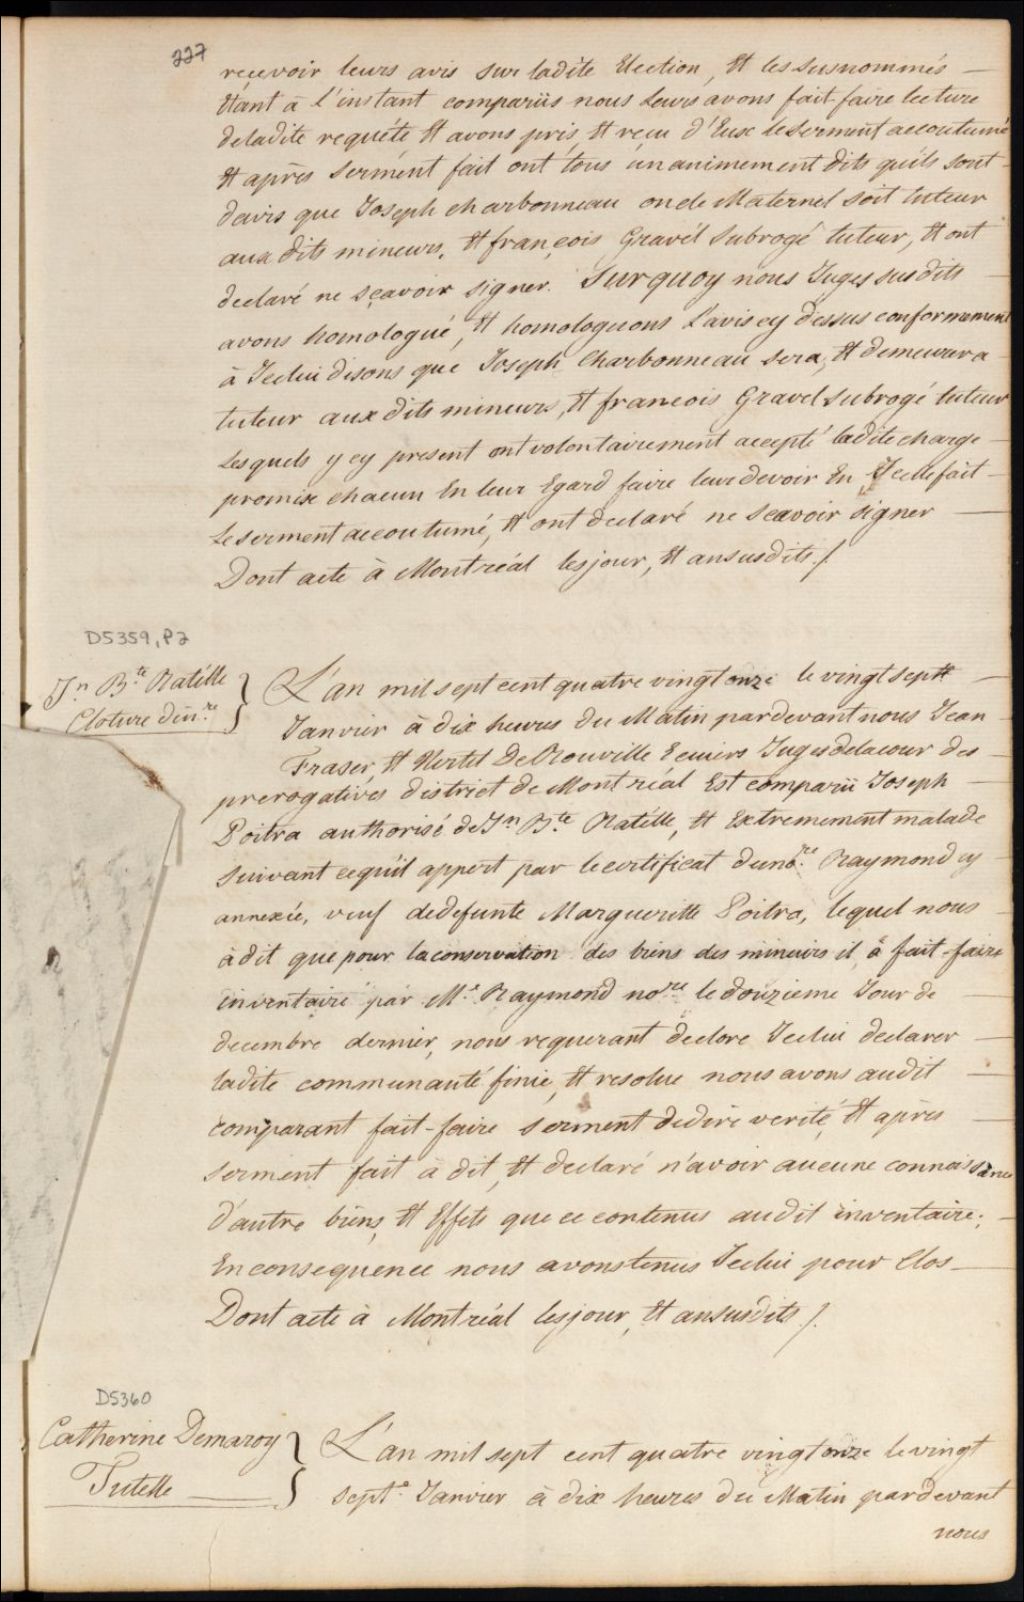 227
recevoir leurs avis sur ladite Election, Et les susnommés
Etant à l'instant comparüs nous leurs avons fait faire lecture
deladite requête Et avons pris Et reçu d'Eux le serment accoutumé
Et après serment fait ont tous unanimement dits qu'ils sont
davis que Joseph charbonneau oncle Maternel soit tuteur
aux dits mineurs, Et françois Gravél subrogé tuteur, Et ont
declaré ne sçavoir signer. Sur quoy nous Juges susdits
avons homologué, Et homologuons L'avis cy dessus conformement
à Jcelui disons que Joseph Charbonneau sera, Et demeurera
tuteur aux dits mineurs, Et francois Gravel subrogé tuteur
Lesquels y cy present ont volontairement accepté ladite charge
promise chacun En leur Egard faire leur devoir En Jcelle fait
Le serment accoutumé, Et ont declaré ne seavoir signer
Dont acte à Montréal les jour, Et an susdits ./.
D5359, P2
Jn Bte Ratélle
Cloture d'inre
L'an mil sept cent quatre vingt onze le vingt septe
Janvier à dix heures du Matin pardevant nous Jean
Fraser, Et Hertel De Rouville Ecuiers Juges delacour des
prerogatives district de Montréal Est comparü Joseph
Poitra authorisé de Jn Bte Ratélle, Et Extremement malade
suivant cequ'il appert par le certificat du nore Raymond cy
annexée, veuf dedefunte Margueritte Poitra, lequel nous
à dit que pour laconservation des biens des mineurs il à fait-faire
inventaire par Me Raymond nore le douzieme Jour de
decembre dernier, nous requerant declore Jcelui declarer
ladite communauté finie, Et resolue nous avons audit
comparant fait-faire serment dedire verité, Et après
serment fait à dit, Et declaré n'avoir aucune connaissance
d'autre biens, Et Effets que ce contenus audit inventaire;
En consequence nous avons tenus Jcelui pour Clos
Dont acte à Montréal les jour, Et an susdits ./.
D5360
Catherine Demaroy
Tutelle
L'an mil sept cent quatre vingt onze le vingt
septe Janvier à dix heures du Matin pardevant
nous